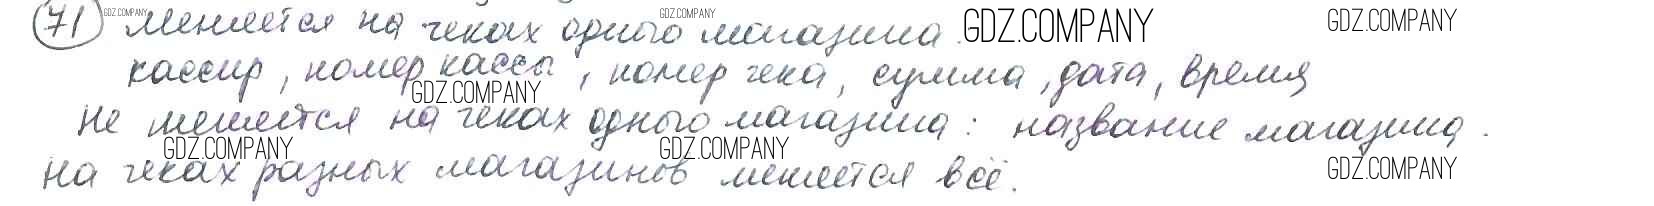 71 меняется на чеках одного магазина. GDZ.COMPANY GDZ.COMPANY GDZ.COMPANY GDZ.COMPANY
кассир, номер кассы, номер чека, сумма, дата, время
GDZ.COMPANY
не меняется на чеках одного магазина: название магазина.
GDZ.COMPANY GDZ.COMPANY GDZ.COMPANY
на чеках разных магазинов меняется всё.